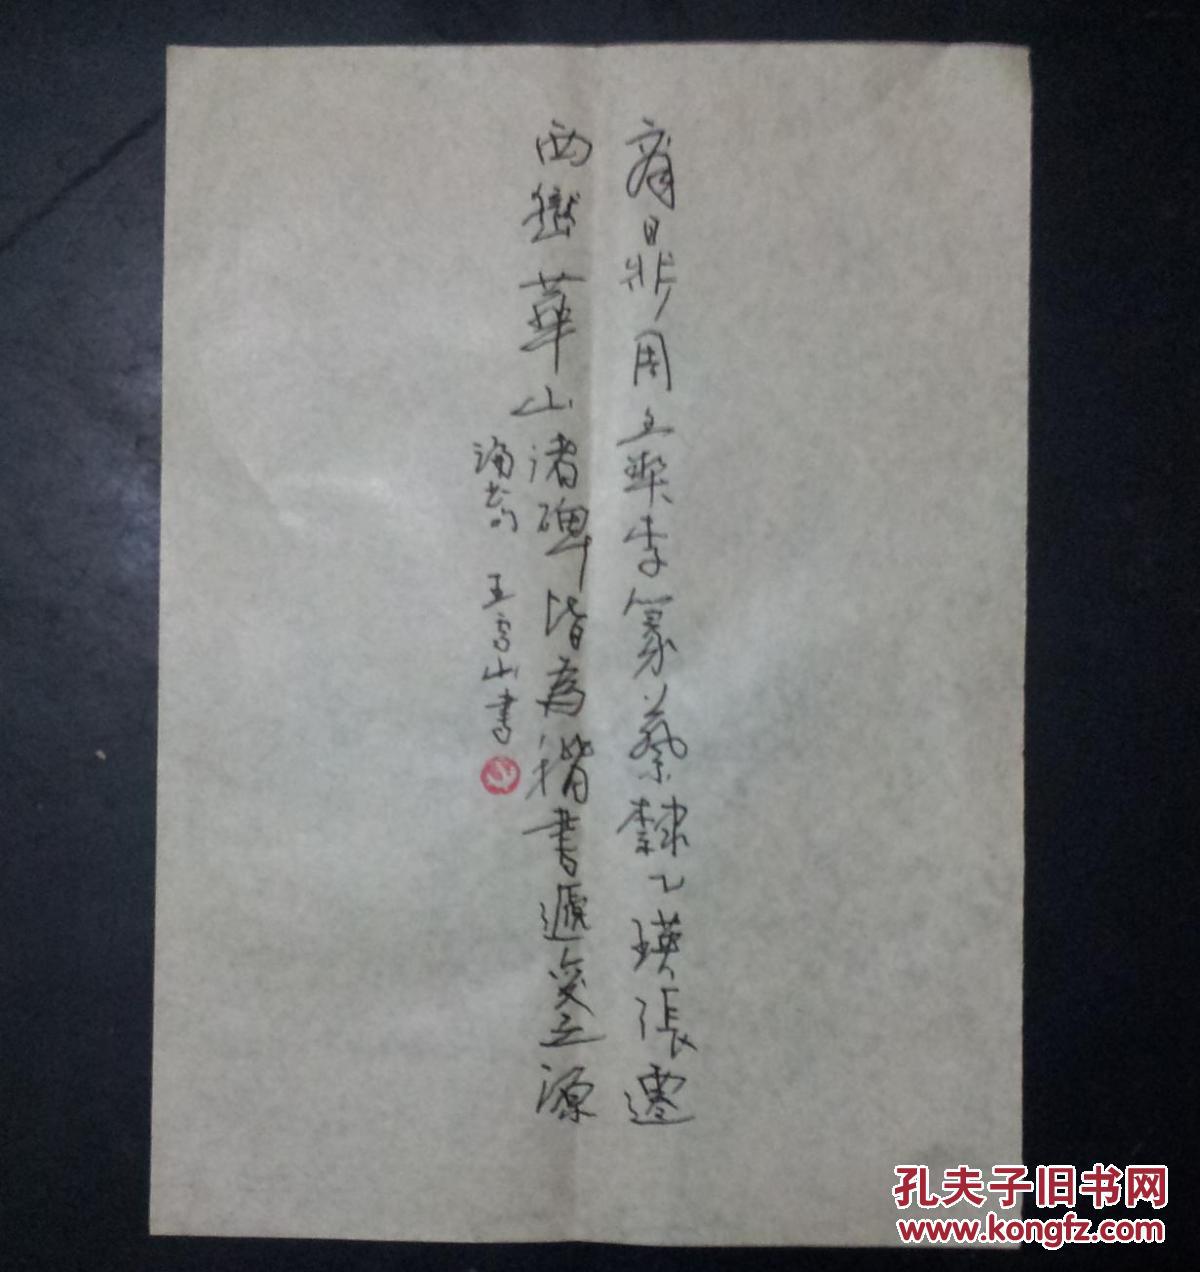 商周立契李篆蔡隸乙瑛張遷
西嶽華山諸碑皆為楷書遞變之源
論書
王雪山書
孔夫子旧书网
www.kongfz.com